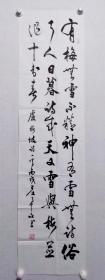 有梅無雪不精神有雪無詩俗
了人日暮詩成天又雪與梅並
作十分春 盧梅坡詩一首丙戌